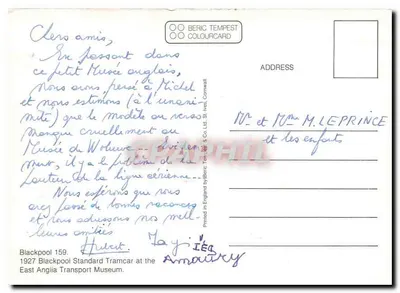 BERIC TEMPEST
COLOURCARD
Chers amis,
En passant dans
ce petit Musée anglais,
nous avons pensé à Michel
et nous estimons (à l'unani-
mité) que le modèle au verso
manque cruellement au
Musée de Woluwe.
mment, il y a le problème de la
hauteur de la ligne aérienne...
Nous espérons que vous
avez passé de bonnes vacances
et vous adressons nos meil-
leures amitiés
Hubert.
Amaury
ADDRESS
Mr. et Mme M. LEPRINCE
et les enfants
Printed in England by Beric Tempest & Co. Ltd. St. Ives, Cornwall
Blackpool 159.
1927 Blackpool Standard Tramcar at the
East Anglia Transport Museum.